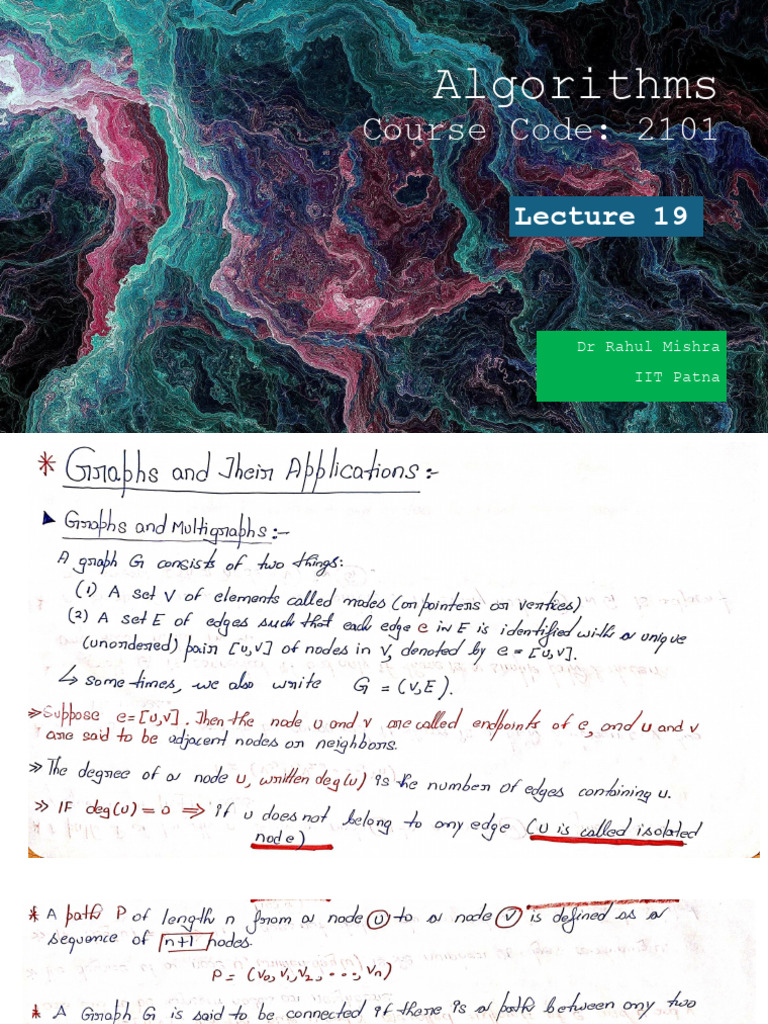 Algorithms
Course Code: 2101
Lecture 19
Dr Rahul Mishra
IIT Patna
* Graphs and Their Applications:-
▶ Graphs and Multigraphs:-
A graph G consists of two things:
(1) A set V of elements called nodes (or pointers or vertices)
(2) A set E of edges such that each edge e in E is identified with a unique
(unordered) pair [u,v] of nodes in V, denoted by e = [u,v].
↳ some times, we also write G = (V,E).
» Suppose e=[u,v]. Then the node u and v are called endpoints of e, and u and v
are said to be adjacent nodes or neighbors.
» The degree of a node u, written deg(u) is the number of edges containing u.
» IF deg(u) = 0 ⇒ if u does not belong to any edge (u is called isolated
node)
* A path P of length n from a node u to a node v is defined as a
sequence of n+1 nodes.
P = (v0, v1, v2, ..., vn)
* A Graph G is said to be connected if there is a path between any two